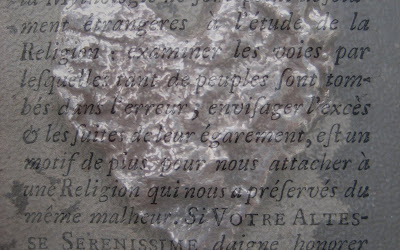 ment étrangères à l'étude de la
Religion; examiner les voies, par
lesquelles tant de peuples ſont tom-
bés dans l'erreur, enviſager l'excès
& les ſuites de leur égarement, eſt un
motif de plus pour nous attacher à
une Religion qui nous a préſervés du
même malheur. Si VOTRE ALTES-
SE SERENISSIME daigne honorer